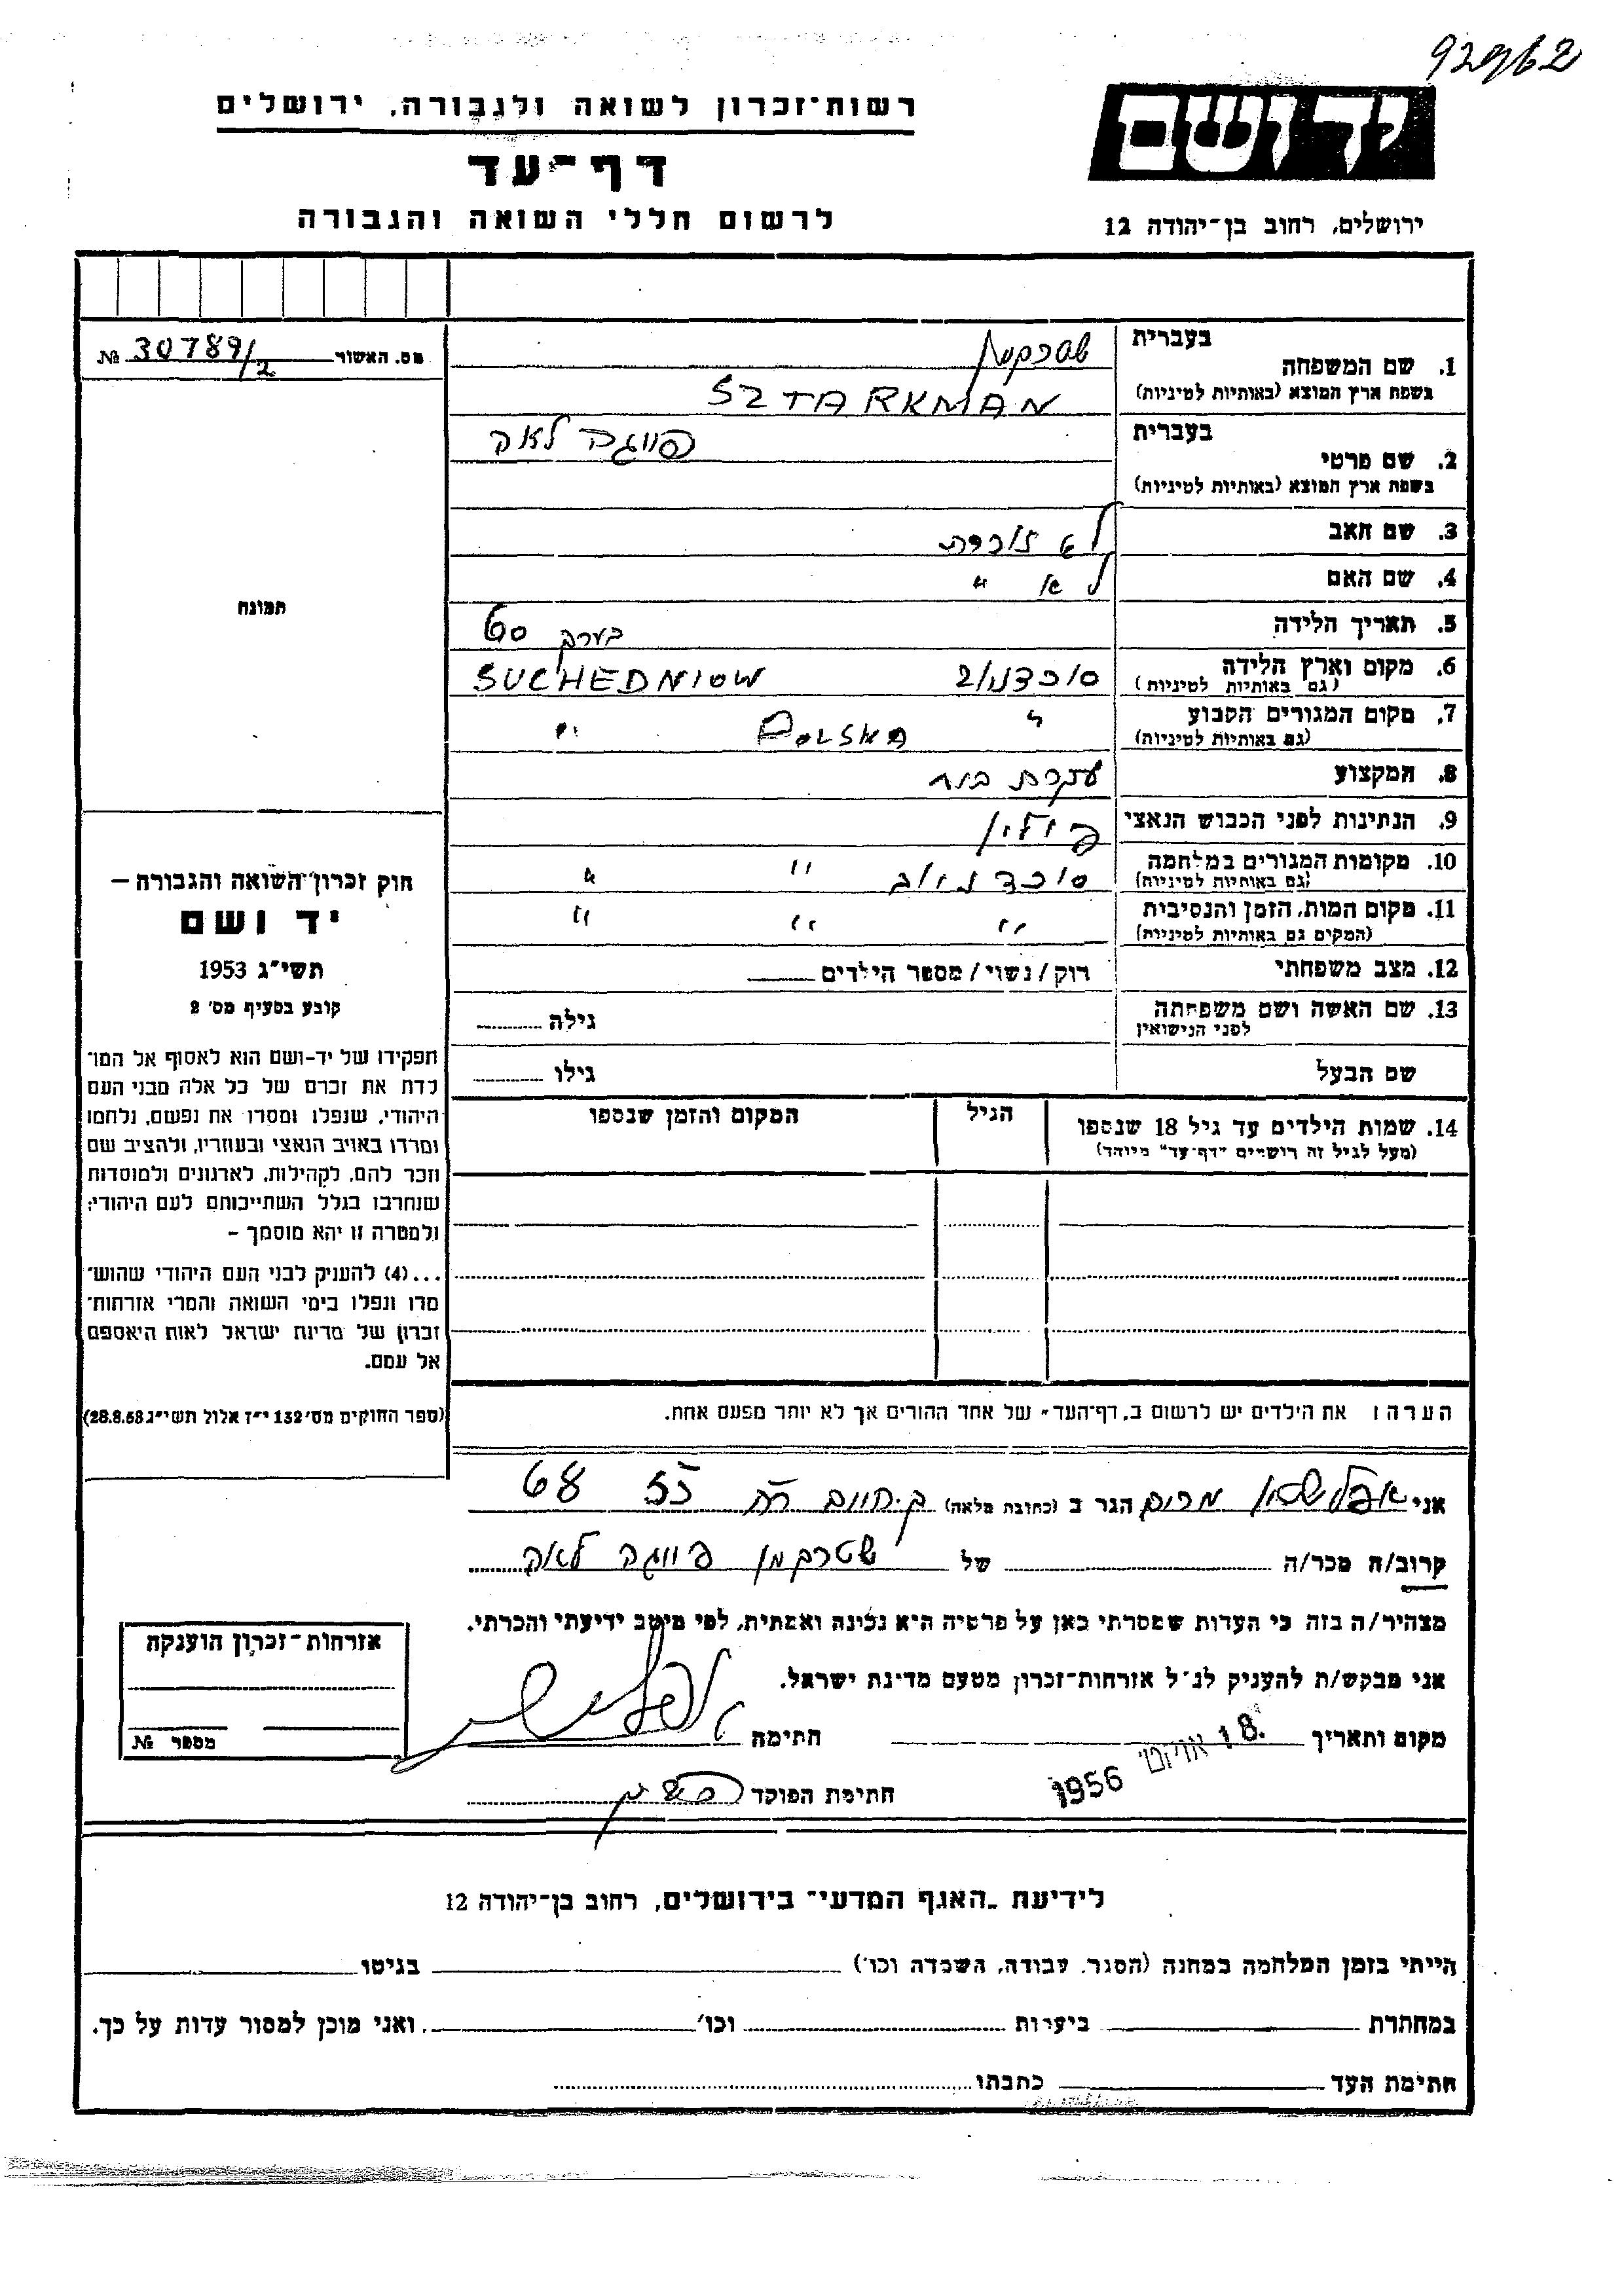 92962
יד ושם
רשות-זכרון לשואה ולגבורה, ירושלים
דף-עד
לרשום חללי השואה והגבורה
ירושלים, רחוב בן-יהודה 12
מס. האשור № 30789/2
בעברית שטרקמן
1. שם המשפחה
בשפת ארץ המוצא (באותיות לטיניות) SZTARKMAN
בעברית פייגה לאה
2. שם פרטי
בשפת ארץ המוצא (באותיות לטיניות)
3. שם האב לא זוכרת
4. שם האם לא "
5. תאריך הלידה בערך 60
6. מקום וארץ הלידה סוכדניוב SUCHEDNIOW
(גם באותיות לטיניות)
7. מקום המגורים הקבוע " POLSKA "
(גם באותיות לטיניות)
8. המקצוע עקרת בית
9. הנתינות לפני הכבוש הנאצי פולין
10. מקומות המגורים במלחמה סוכדניוב " "
(גם באותיות לטיניות)
11. מקום המות, הזמן והנסיבות " " "
(המקום גם באותיות לטיניות)
12. מצב משפחתי רוק/נשוי/מספר הילדים
13. שם האשה ושם משפחתה גילה
לפני הנישואין
שם הבעל גילו
14. שמות הילדים עד גיל 18 שנספו הגיל המקום והזמן שנספו
(מעל לגיל זה רושמים "דף-עד" מיוחד)
הערה: את הילדים יש לרשום ב"דף-העד" של אחד ההורים אך לא יותר מפעם אחת.
תמונה
חוק זכרון השואה והגבורה –
יד ושם
תשי"ג 1953
קובע בסעיף מס' 2
תפקידו של יד-ושם הוא לאסוף אל המו־
לדת את זכרם של כל אלה מבני העם
היהודי, שנפלו ומסרו את נפשם, נלחמו
ומרדו באויב הנאצי ובעוזריו, ולהציב שם
וזכר להם, לקהילות, לארגונים ולמוסדות
שנחרבו בגלל השתייכותם לעם היהודי;
ולמטרה זו יהא מוסמך –
...(4) להעניק לבני העם היהודי שהוש־
מדו ונפלו בימי השואה והמרי אזרחות־
זכרון של מדינת ישראל לאות היאספם
אל עמם.
(ספר החוקים מס' 132 י"ז אלול תשי"ג 28.8.53)
אני מרים הגר ב (כתובת מלאה) ק. חיים 68
קרוב/ה מכר/ה של שטרקמן פייגה לאה
מצהיר/ה בזה כי העדות שמסרתי כאן על פרטיה היא נכונה ואמתית, לפי מיטב ידיעתי והכרתי.
אני מבקש/ת להעניק לנ"ל אזרחות-זכרון מטעם מדינת ישראל.
מקום ותאריך 18. 1956 חתימה
חתימת הפוקד
אזרחות-זכרון הוענקה
מספר №
לידיעת "האגף המדעי" בירושלים, רחוב בן-יהודה 12
הייתי בזמן המלחמה במחנה (הסגר, עבודה, השמדה וכו') בגיטו
במחתרת ביערות וכו' ואני מוכן למסור עדות על כך.
חתימת העד כתבתו